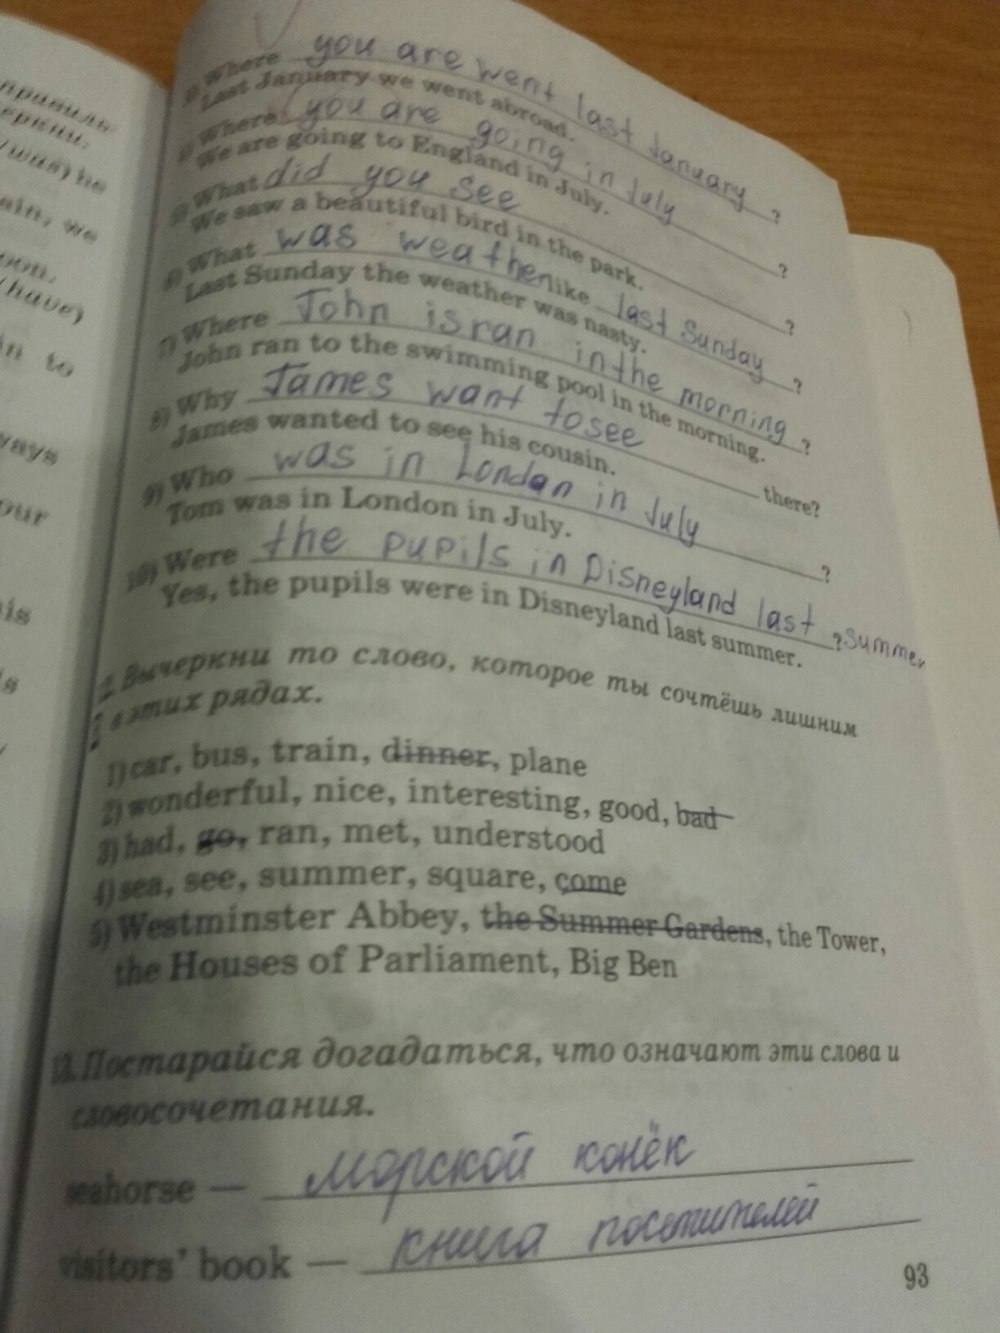 Where you are went last January ?
Last January we went abroad.
Where you are going in July ?
We are going to England in July.
What did you see ?
We saw a beautiful bird in the park.
6) What was weather like last Sunday ?
Last Sunday the weather was nasty.
7) Where John is ran in the morning ?
John ran to the swimming pool in the morning.
8) Why James want to see there?
James wanted to see his cousin.
9) Who was in London in July ?
Tom was in London in July.
10) Were the pupils in Disneyland last ? summer
Yes, the pupils were in Disneyland last summer.
Вычеркни то слово, которое ты сочтёшь лишним
в этих рядах.
1) car, bus, train, dinner, plane
2) wonderful, nice, interesting, good, bad
3) had, go, ran, met, understood
4) sea, see, summer, square, come
5) Westminster Abbey, the Summer Gardens, the Tower,
the Houses of Parliament, Big Ben
Постарайся догадаться, что означают эти слова и
словосочетания.
seahorse — морской конёк
visitors' book — книга посетителей
93
правиль-
черкни.
(was) he
ain, we
oon,
(have)
in to
ways
our
is
s